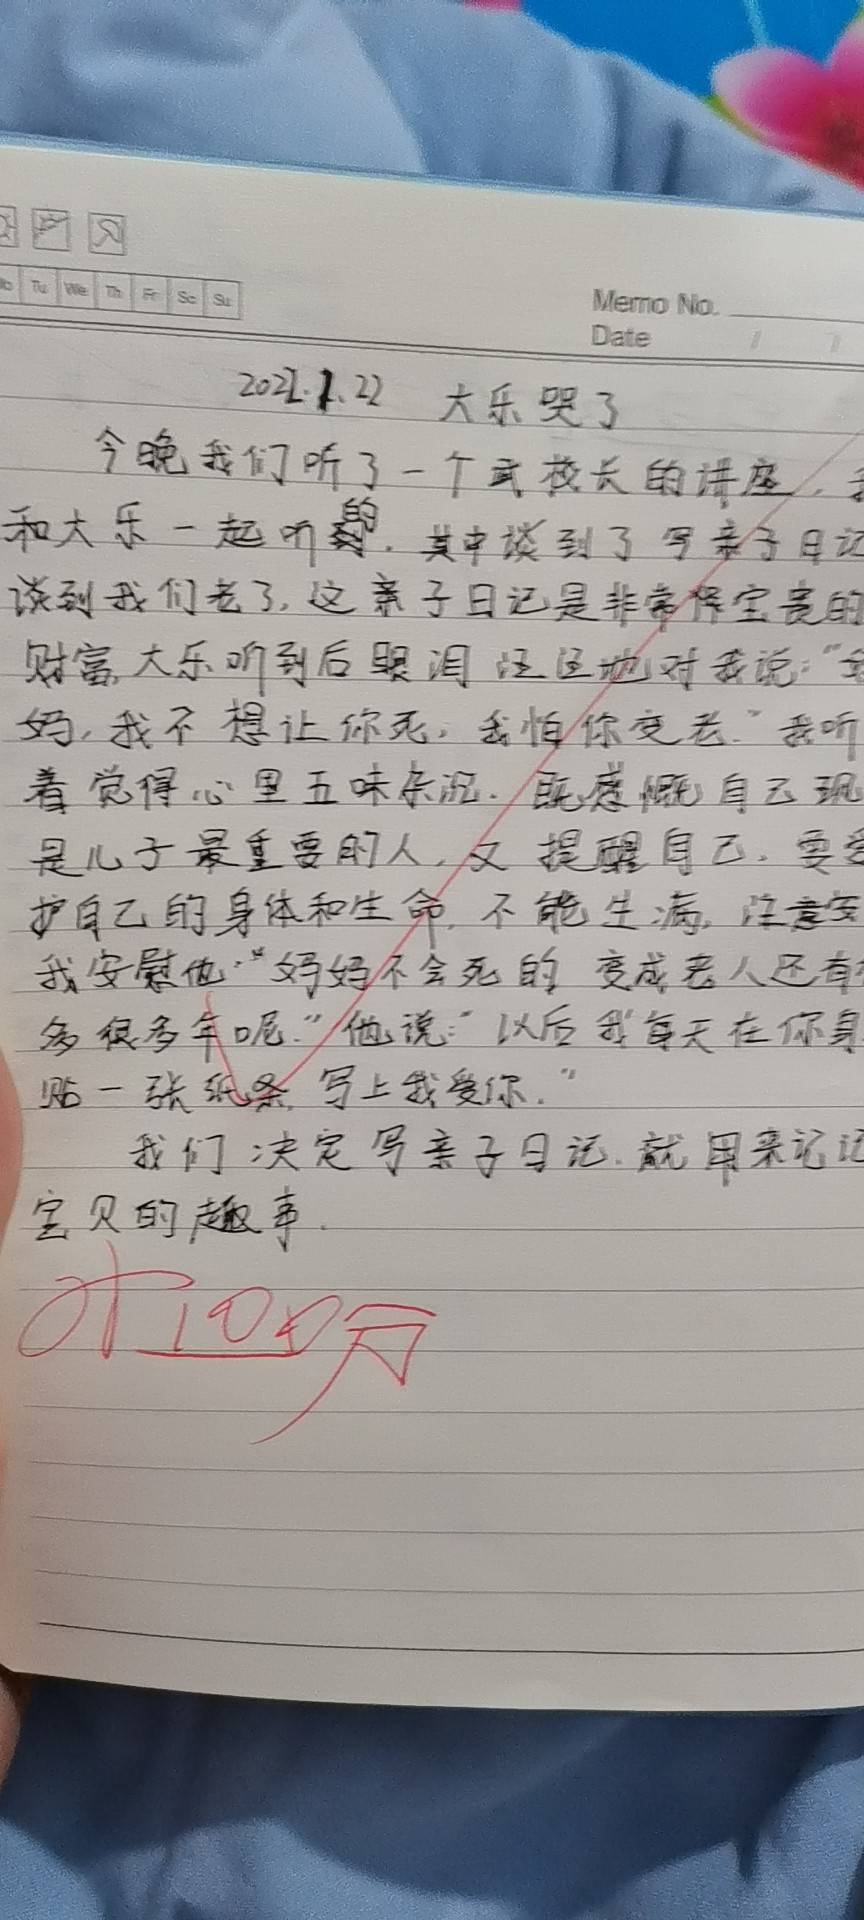 Tu We Th Fr Sa Su
Memo No.
Date / /
2022.1.22 大乐哭了
今晚我们听了一个武校长的讲座,我
和大乐一起听的.其中谈到了写亲子日记
谈到我们老了,这亲子日记是非常宝贵的
财富,大乐听到后眼泪汪汪地对我说:"妈
妈,我不想让你死,我怕你变老."我听
着觉得心里五味杂沉.既感慨自己现
是儿子最重要的人,又提醒自己.要爱
护自己的身体和生命,不能生满,注意安
我安慰他:"妈妈不会死的 变成老人还有很
多很多年呢."他说:"以后我每天在你身
贴一张纸条,写上我爱你."
我们决定写亲子日记.就用来记记
宝贝的趣事.
100分